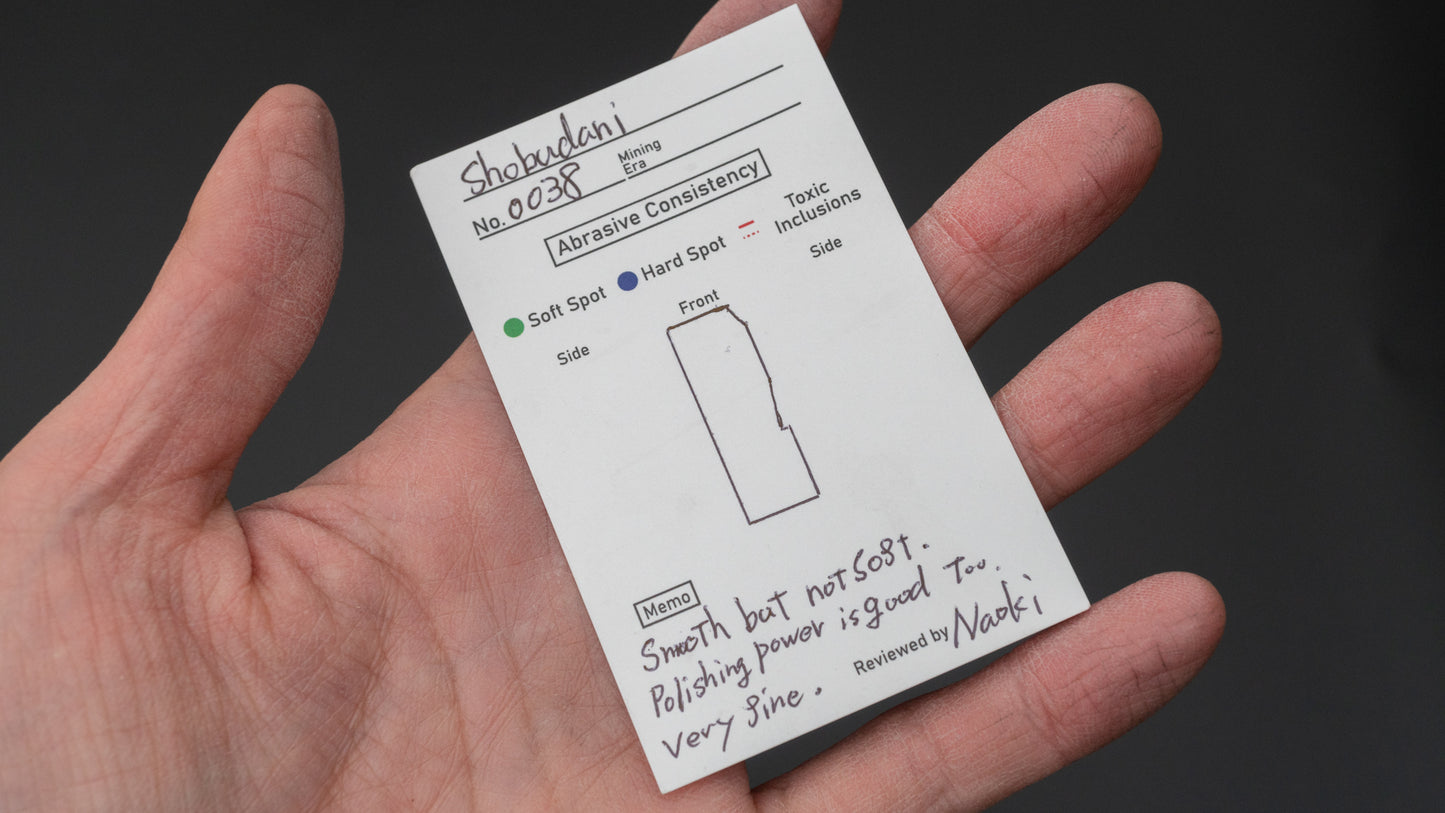 Shobudani
No. 0038 Mining Era
Abrasive Consistency
Soft Spot Hard Spot Toxic Inclusions
Side Front Side
Memo
Smooth but not Soft.
Polishing power is good too.
very fine.
Reviewed by Naoki